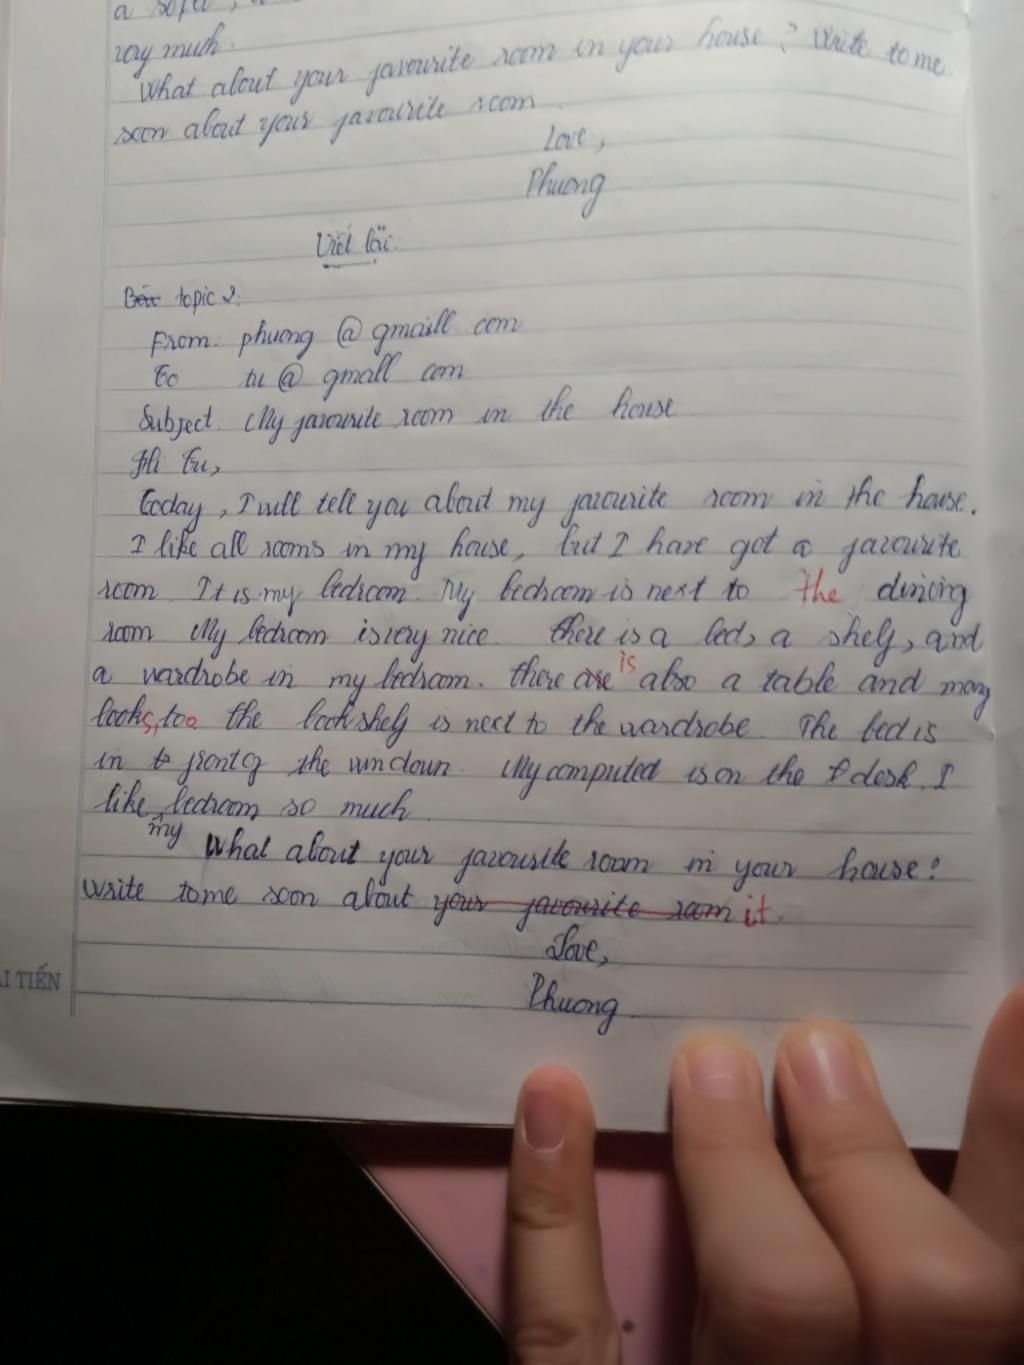 a sofa,
very much.
What about your favourite room in your house? Write to me
soon about your favourite room.
Love,
Phuong
Viết lại:
Bài topic 2:
From: phuong @ gmaill com
To tu @ gmall com
Subject: My favourite room in the house
Hi Tu,
Today, I will tell you about my favourite room in the house.
I like all rooms in my house, but I have got a favourite
room. It is my bedroom. My bedroom is next to the dining
room. My bedroom is very nice. There is a bed, a shelf, and
a wardrobe in my bedroom. there are is also a table and many
books, too. the bookshelf is next to the wardrobe. The bed is
in front of the windown. My computed is on the desk. I
like my bedroom so much.
What about your favourite room in your house?
Write to me soon about your favourite room it.
Love,
Phuong
ẢI TIẾN